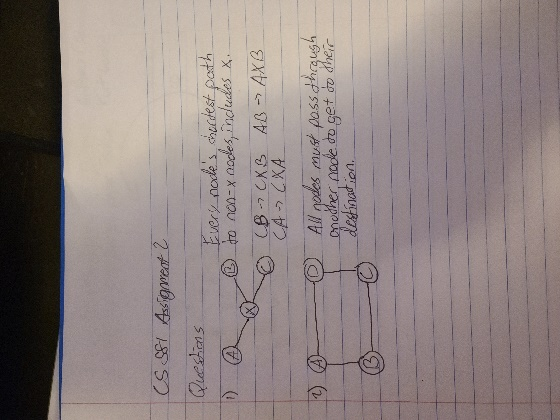 CS 581 Assignment 2
Questions
1)
A
B
X
C
Every node's shortest path
to non-x nodes, includes x.
CB -> CXB AB -> AXB
CA -> CXA
2)
A
D
B
C
All nodes must pass through
another node to get to their
destination.